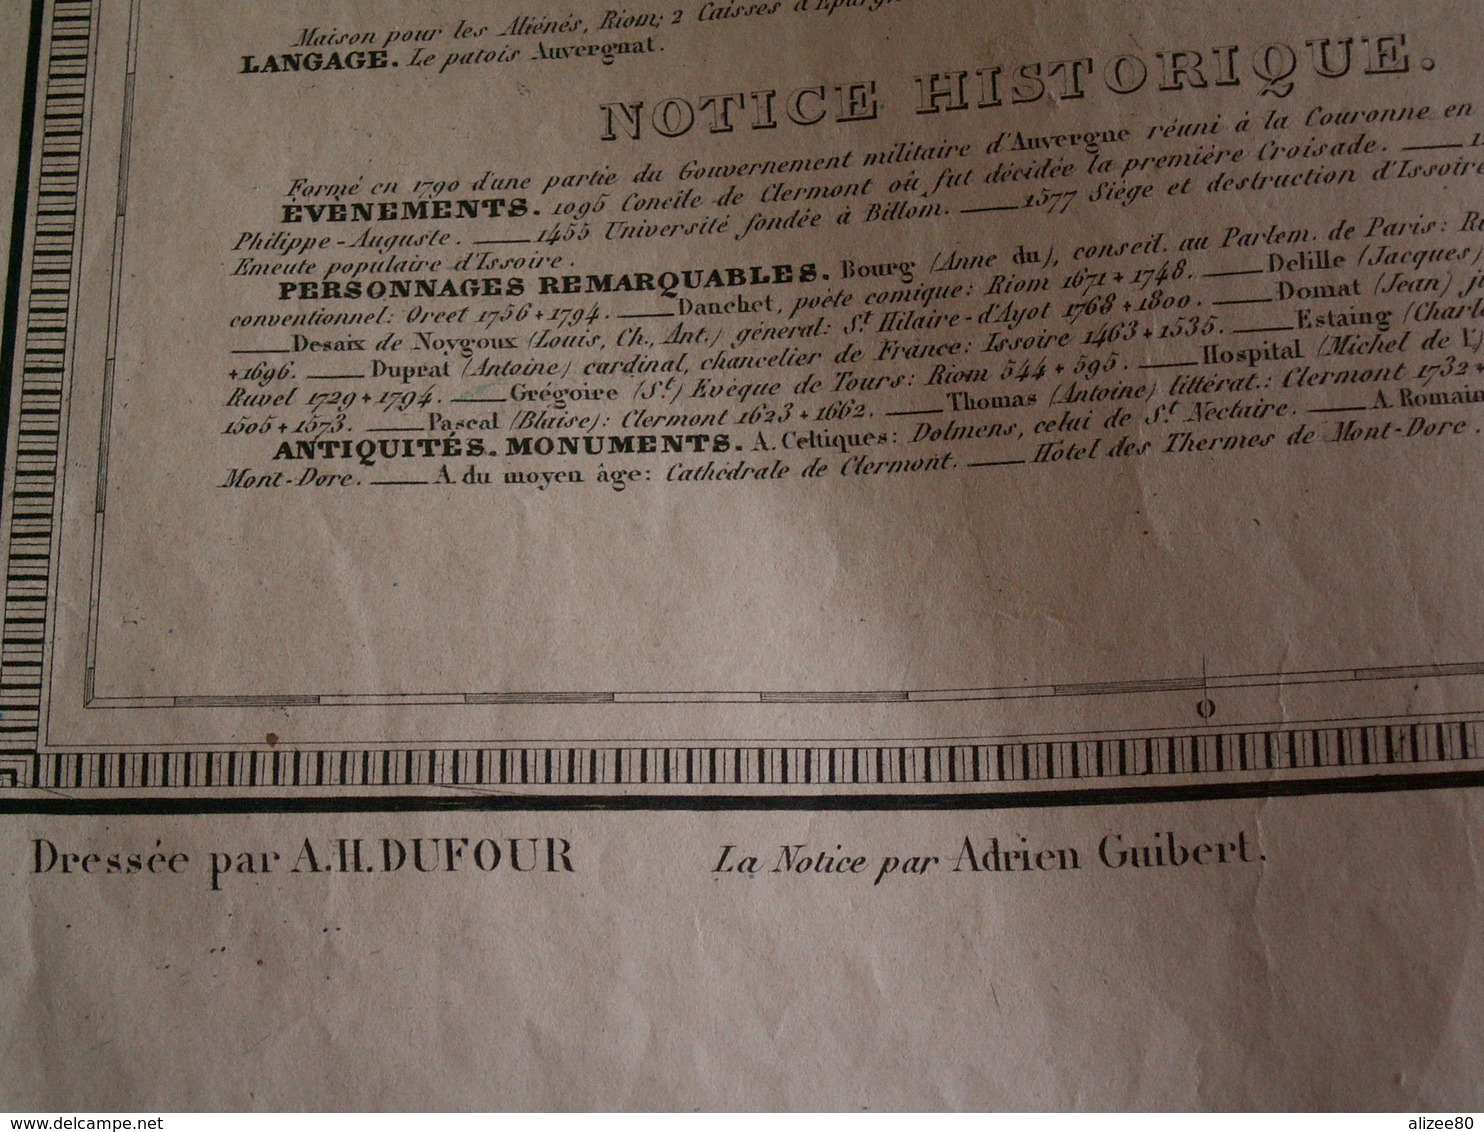 Maison pour les Aliénés, Riom; 2 Caisses d'Eparg
LANGAGE. Le patois Auvergnat.
NOTICE HISTORIQUE.
Formé en 1790 d'une partie du Gouvernement militaire d'Auvergne réuni à la Couronne en
ÉVÈNEMENTS. 1095 Concile de Clermont où fut décidée la première Croisade.
Philippe-Auguste. 1455 Université fondée à Billom. 1577 Siége et destruction d'Issoire
Emeute populaire d'Issoire.
PERSONNAGES REMARQUABLES. Bourg (Anne du), conseil. au Parlem. de Paris: R
conventionnel: Orcet 1756 + 1794. Danchet, poëte comique: Riom 1671 + 1748. Delille (Jacques)
Desaix de Noygoux (Louis, Ch, Ant.) général: St Hilaire-d'Ayot 1768 + 1800. Domat (Jean) j
+ 1696. Duprat (Antoine) cardinal, chancelier de France: Issoire 1463 + 1535. Estaing (Charle
Ravel 1729 + 1794. Grégoire (St) Evèque de Tours: Riom 544 + 595. Hospital (Michel de l')
1505 + 1573. Pascal (Blaise): Clermont 1623 + 1662. Thomas (Antoine) littérat.: Clermont 1732 +
ANTIQUITÉS. MONUMENTS. A. Celtiques: Dolmens, celui de St Nectaire. A. Romain
Mont-Dore. A. du moyen âge: Cathédrale de Clermont. Hôtel des Thermes de Mont-Dore.
0
Dressée par A.H. DUFOUR
La Notice par Adrien Guibert.
alizee80